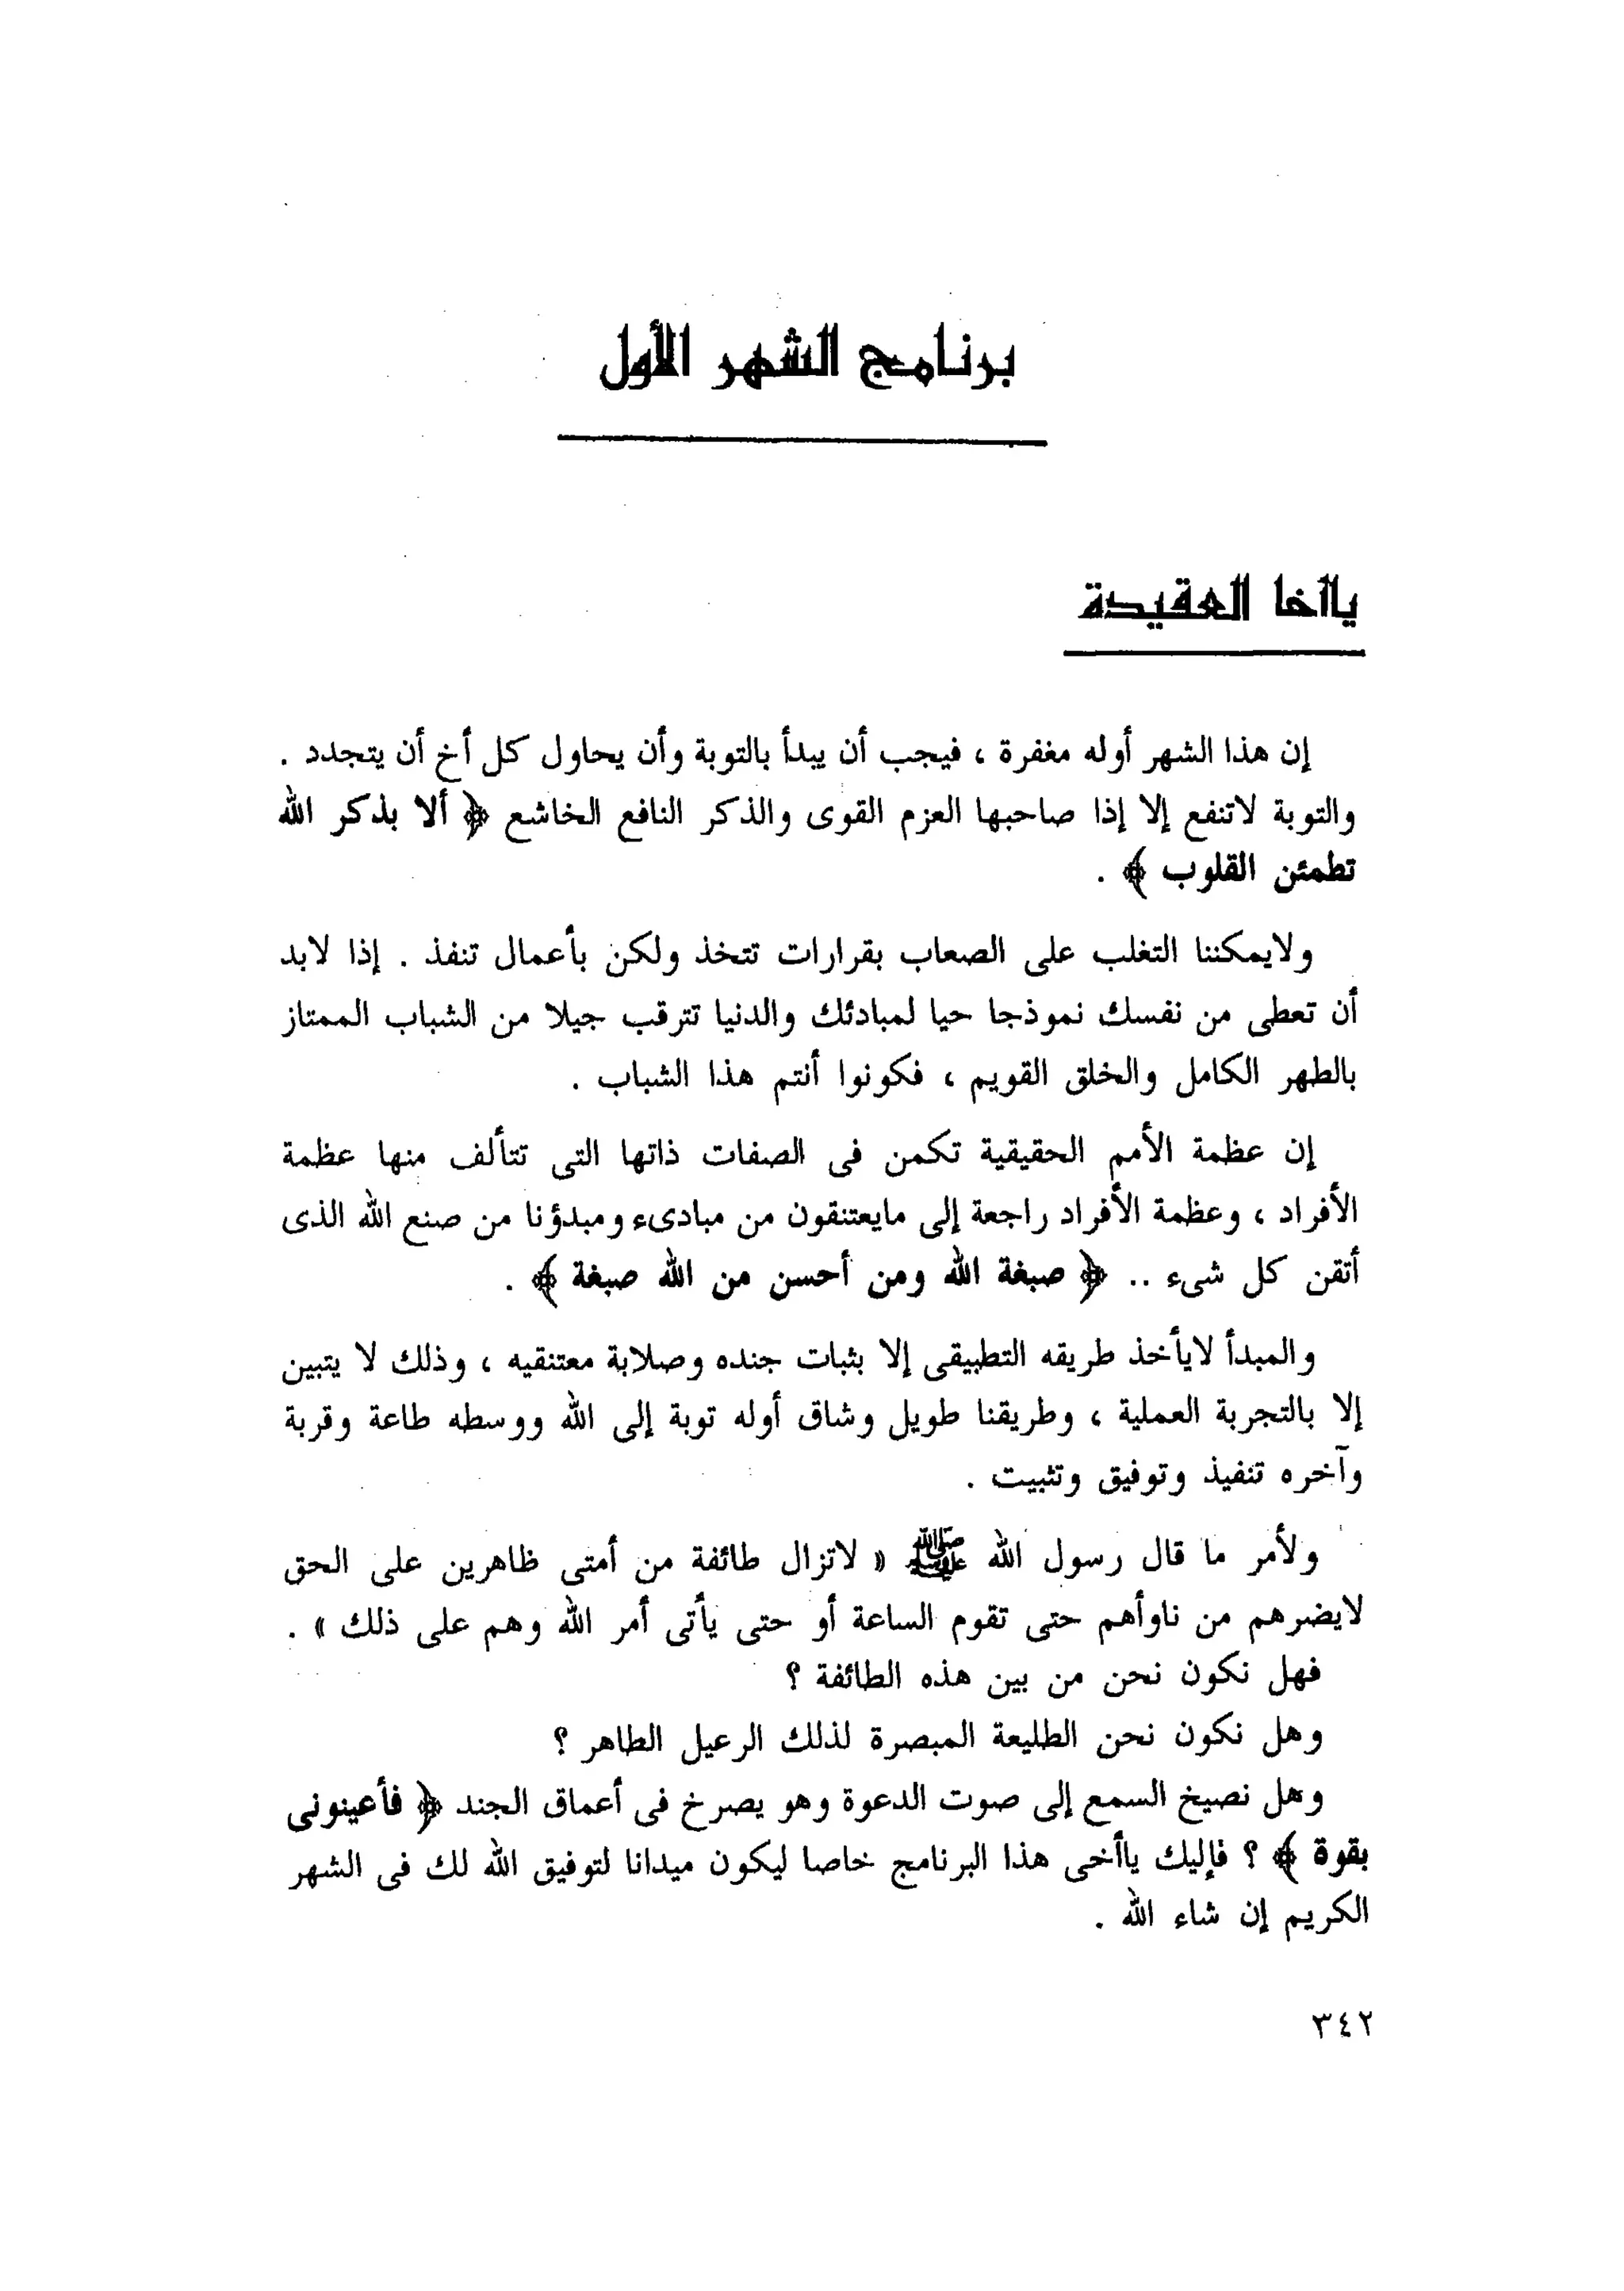 برنامج الشهر الأول
ياأخا العقيدة
إن هذا الشهر أوله مغفرة ، فيجب أن يبدأ بالتوبة وأن يحاول كل أخ أن يتجدد .
والتوبة لاتنفع إلا إذا صاحبها العزم القوى والذكر النافع الخاشع ﴿ ألا بذكر الله
تطمئن القلوب ﴾ .
ولايمكننا التغلب على الصعاب بقرارات تتخذ ولكن بأعمال تنفذ . إذا لابد
أن تعطى من نفسك نموذجا حيا لمبادئك والدنيا تترقب جيلا من الشباب الممتاز
بالطهر الكامل والخلق القويم ، فكونوا أنتم هذا الشباب .
إن عظمة الأمم الحقيقية تكمن فى الصفات ذاتها التى تتألف منها عظمة
الأفراد ، وعظمة الأفراد راجعة إلى مايعتنقون من مبادىء ومبدؤنا من صنع الله الذى
أتقن كل شىء .. ﴿ صبغة الله ومن أحسن من الله صبغة ﴾ .
والمبدأ لايأخذ طريقه التطبيقى إلا بثبات جنده وصلابة معتنقيه ، وذلك لا يتبين
إلا بالتجربة العملية ، وطريقنا طويل وشاق أوله توبة إلى الله ووسطه طاعة وقربة
وآخره تنفيذ وتوفيق وتثبيت .
ولأمر ما قال رسول الله ﷺ « لاتزال طائفة من أمتى ظاهرين على الحق
لايضرهم من ناوأهم حتى تقوم الساعة أو حتى يأتى أمر الله وهم على ذلك » .
فهل نكون نحن من بين هذه الطائفة ؟
وهل نكون نحن الطليعة المبصرة لذلك الرعيل الطاهر ؟
وهل نصيخ السمع إلى صوت الدعوة وهو يصرخ فى أعماق الجند ﴿ فأعينونى
بقوة ﴾ ؟ فإليك ياأخى هذا البرنامج خاصا ليكون ميدانا لتوفيق الله لك فى الشهر
الكريم إن شاء الله .
٣٤٢